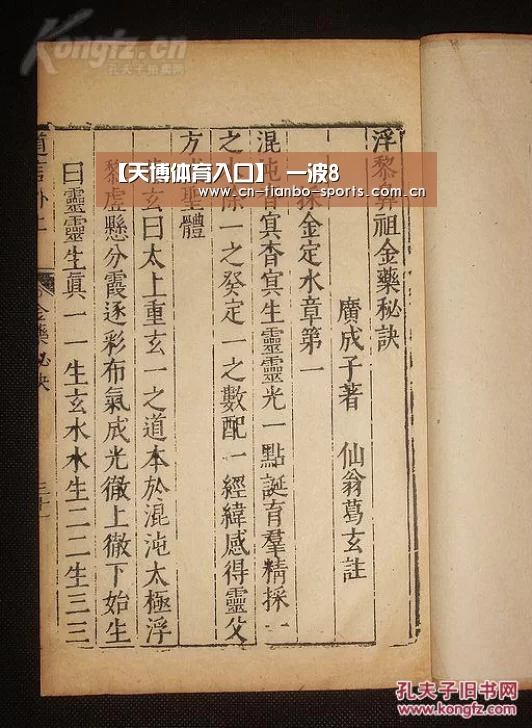 Kongfz.cn
孔夫子拍卖网
浮黎鼻祖金藥秘訣
廣成子著 仙翁葛玄註
採金定水章第一
混沌杳㝠杳㝠生靈靈光一點誕育羣精採一
之 一之癸定一之數配一經緯感得靈父
方 聖體
玄曰太上重玄一之道本於混沌太極浮
黎虛懸分霞逐彩布氣成光徹上徹下始生
曰靈靈生眞一一生玄水水生二二生三三
金藥秘訣
三十一
【天博体育入口】 一波8
www.cn-tianbo-sports.com.cn
孔夫子旧书网
www.kongfz.com